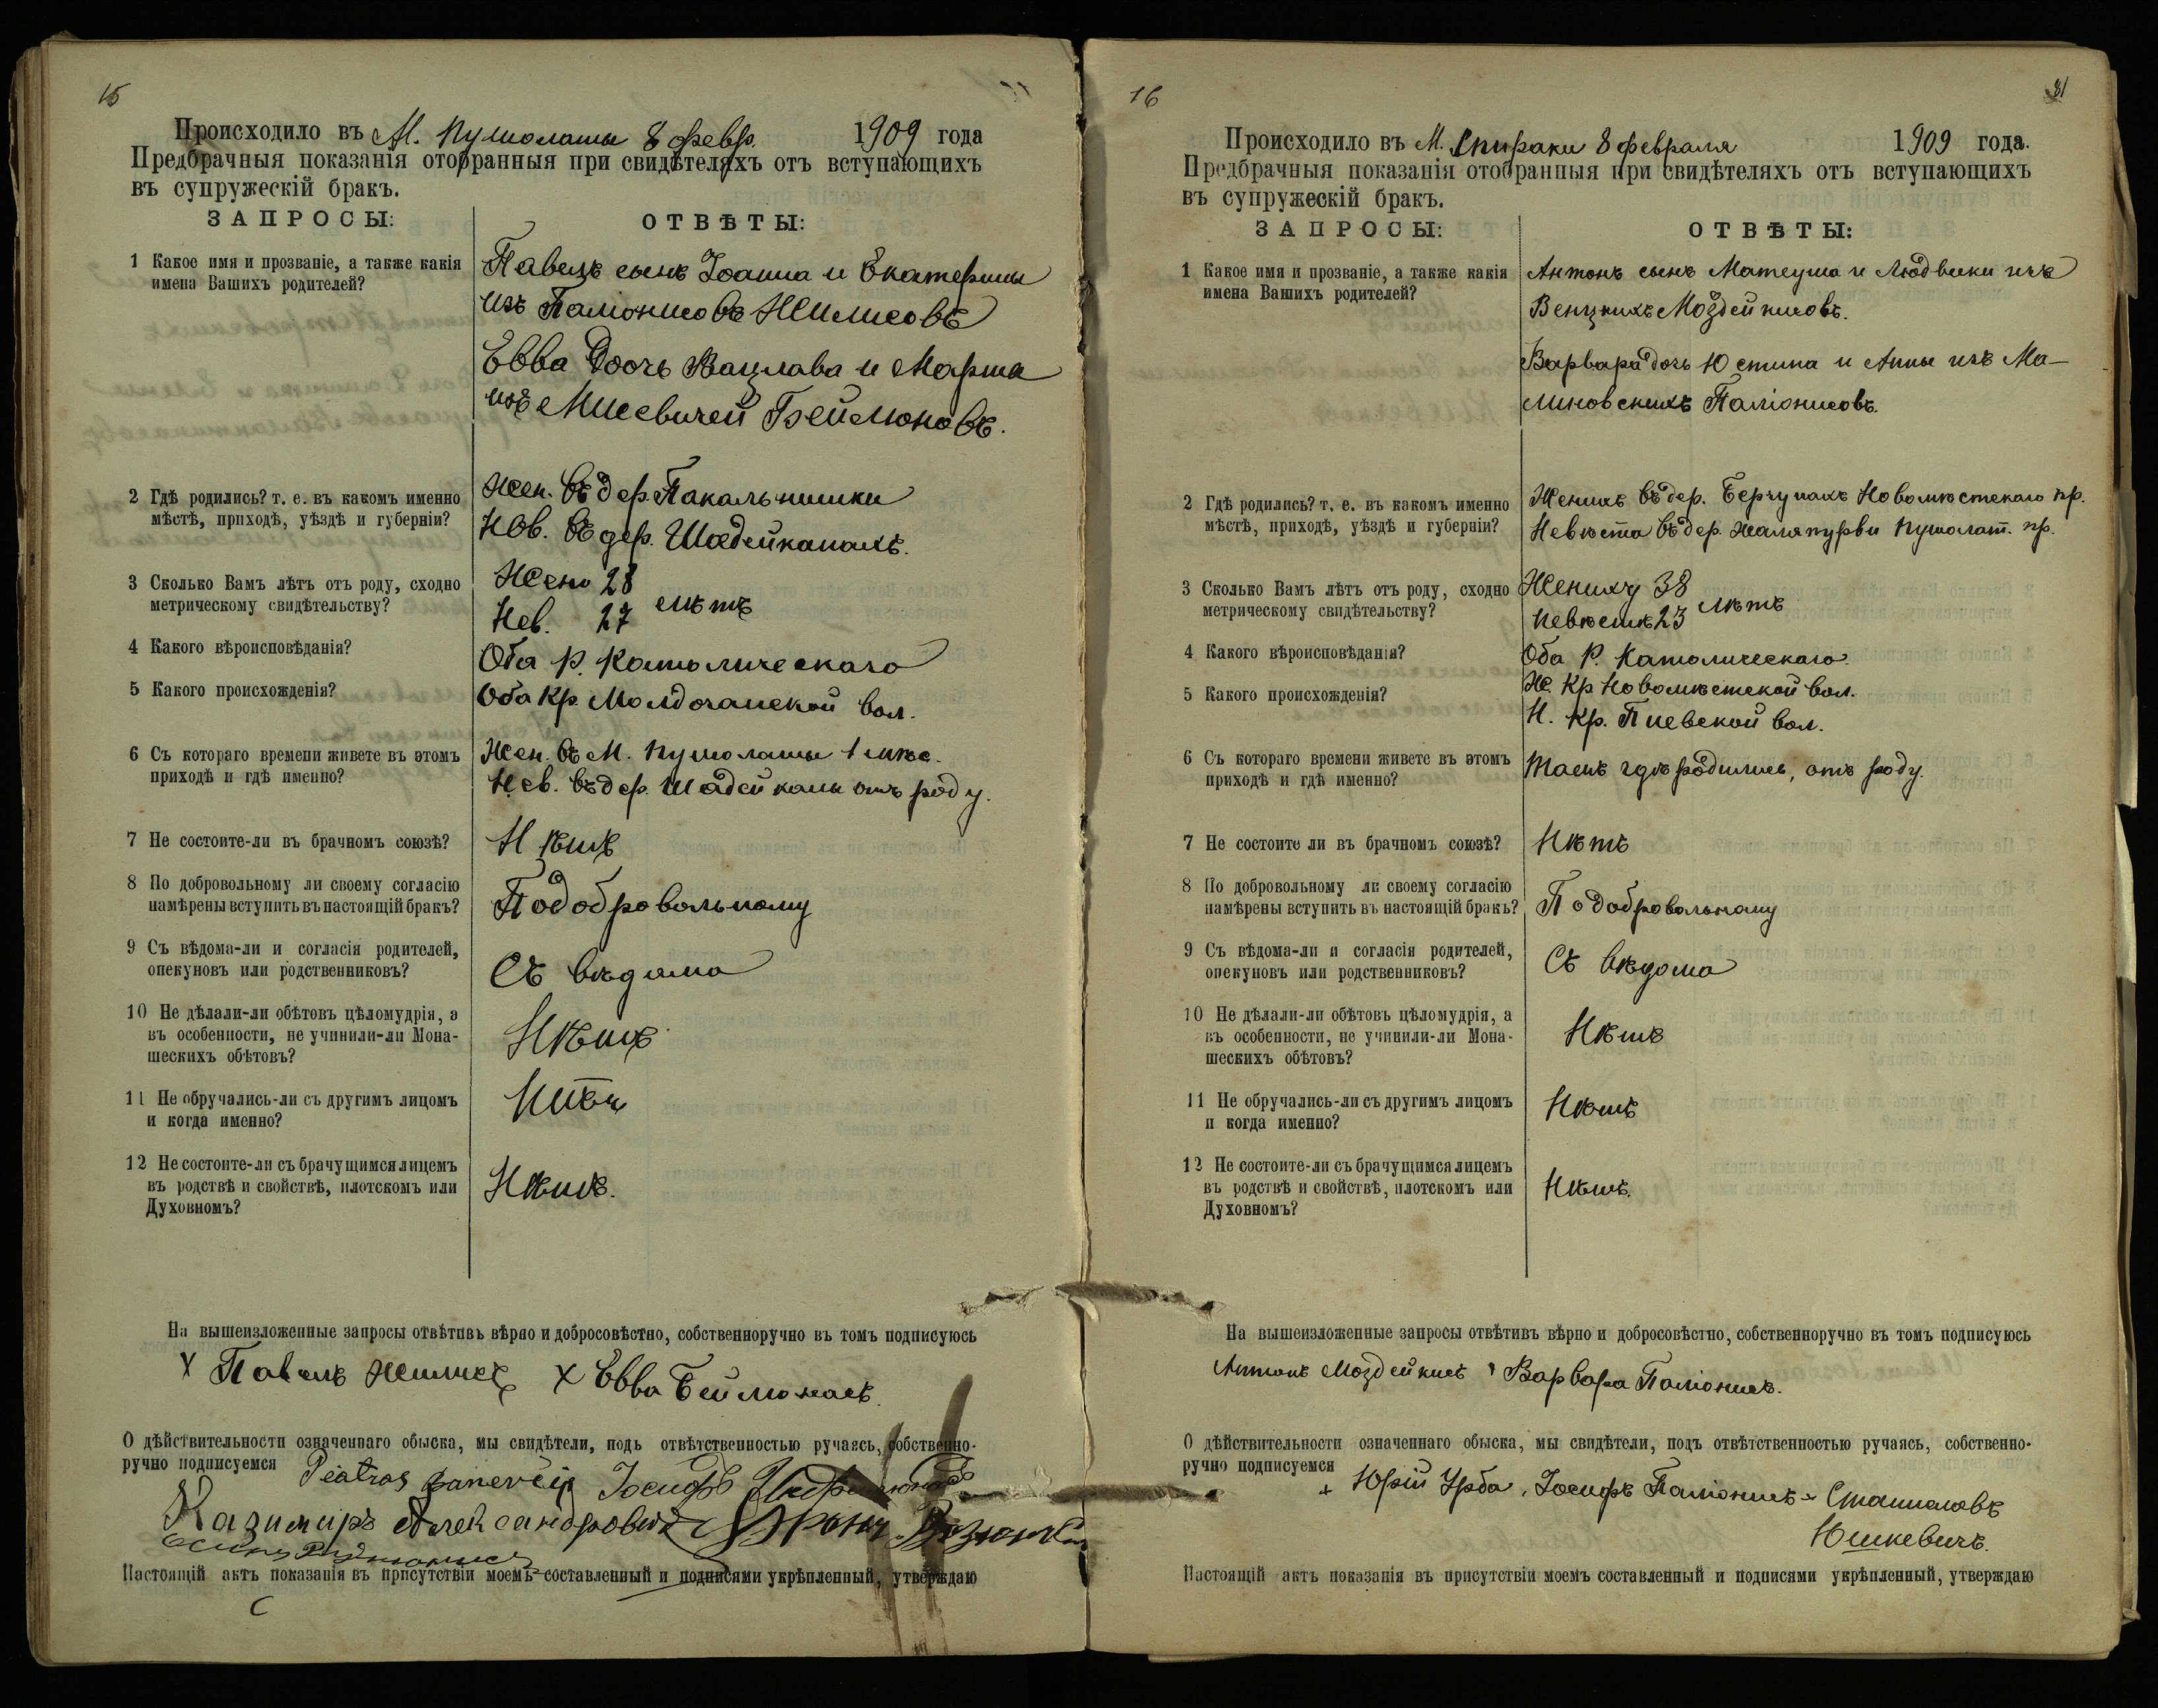 15
Происходило въ М. Пушолаты 8 февр. 1909 года
Предбрачныя показанія отобранныя при свидѣтеляхъ отъ вступающихъ
въ супружескій бракъ.
ЗАПРОСЫ: ОТВѢТЫ:
1 Какое имя и прозваніе, а также какія
имена Вашихъ родителей?
Павелъ сынъ Іоанна и Екатерины
изъ Паліонисовъ
Евва дочь Вацлава и Марта
изъ Мисевичей
2 Гдѣ родились? т. е. въ какомъ именно
мѣстѣ, приходѣ, уѣздѣ и губерніи?
Жен. въ дер. Пакальнишки
Нев. въ дер. Шадейканахъ.
3 Сколько Вамъ лѣтъ отъ роду, сходно
метрическому свидѣтельству?
Жен 28
Нев. 27 лѣтъ
4 Какого вѣроисповѣданія?
Оба Р. Католическаго
5 Какого происхожденія?
Оба Кр. вол.
6 Съ котораго времени живете въ этомъ
приходѣ и гдѣ именно?
Жен. въ М. Пушолаты 1 мѣс.
Нев. въ дер. Шадейканы отъ роду.
7 Не состоите-ли въ брачномъ союзѣ?
Нѣтъ
8 По добровольному ли своему согласію
намѣрены вступить въ настоящій бракъ?
По добровольному
9 Съ вѣдома-ли и согласія родителей,
опекуновъ или родственниковъ?
Съ вѣдома
10 Не дѣлали-ли обѣтовъ цѣломудрія, а
въ особенности, не учинили-ли Мона-
шескихъ обѣтовъ?
Нѣтъ
11 Не обручались-ли съ другимъ лицомъ
и когда именно?
12 Не состоите-ли съ брачущимся лицемъ
въ родствѣ и свойствѣ, плотскомъ или
Духовномъ?
Нѣтъ.
На вышеизложенные запросы отвѣтивъ вѣрно и добросовѣстно, собственноручно въ томъ подписуюсь
X Павелъ X Евва
О дѣйствительности означеннаго обыска, мы свидѣтели, подъ отвѣтственностью ручаясь, собственно-
ручно подписуемся Piatras Іосифъ
Казимиръ Александровичъ
Настоящій актъ показанія въ присутствіи моемъ составленный и подписями укрѣпленный, утверждаю
16 31
Происходило въ М. Спираки 8 февраля 1909 года.
Предбрачныя показанія отобранныя при свидѣтеляхъ отъ вступающихъ
въ супружескій бракъ.
ЗАПРОСЫ: ОТВѢТЫ:
1 Какое имя и прозваніе, а также какія
имена Вашихъ родителей?
Антонъ сынъ Матеуша и Людвики изъ
Моздейкисовъ.
Варвара дочь Юстина и Анны изъ Ма-
линовскихъ Паліонисовъ.
2 Гдѣ родились? т. е. въ какомъ именно
мѣстѣ, приходѣ, уѣздѣ и губерніи?
Женихъ въ дер. Берчунахъ Новомѣстскаго пр.
Невѣста въ дер. Жаляпурви Пушолат. пр.
3 Сколько Вамъ лѣтъ отъ роду, сходно
метрическому свидѣтельству?
Жениху 38
Невѣстѣ 23 лѣтъ
4 Какого вѣроисповѣданія?
Оба Р. Католическаго.
5 Какого происхожденія?
Ж. Кр Новомѣстской вол.
Н. Кр. вол.
6 Съ котораго времени живете въ этомъ
приходѣ и гдѣ именно?
Тамъ гдѣ родились, отъ роду.
7 Не состоите ли въ брачномъ союзѣ?
Нѣтъ
8 По добровольному ли своему согласію
намѣрены вступить въ настоящій бракъ?
По добровольному
9 Съ вѣдома-ли и согласія родителей,
опекуновъ или родственниковъ?
Съ вѣдома
10 Не дѣлали-ли обѣтовъ цѣломудрія, а
въ особенности, не учинили-ли Мона-
шескихъ обѣтовъ?
Нѣтъ
11 Не обручались-ли съ другимъ лицомъ
и когда именно?
Нѣтъ
12 Не состоите-ли съ брачущимся лицемъ
въ родствѣ и свойствѣ, плотскомъ или
Духовномъ?
Нѣтъ.
На вышеизложенные запросы отвѣтивъ вѣрно и добросовѣстно, собственноручно въ томъ подписуюсь
Антонъ Моздейкисъ Варвара Паліонисъ.
О дѣйствительности означеннаго обыска, мы свидѣтели, подъ отвѣтственностью ручаясь, собственно-
ручно подписуемся
+ Юрій Урба, Іосифъ Паліонисъ Станиславъ
Юшкевичъ.
Настоящій актъ показанія въ присутствіи моемъ составленный и подписями укрѣпленный, утверждаю